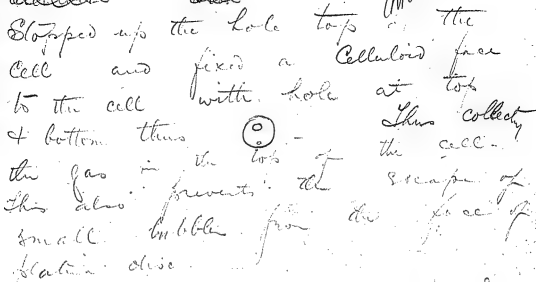 Stopped up the hole top of the
cell and fixed a Celluloid face
to the cell with hole at top
& bottom thus - Thus collectg
the gas in the top of the cell -
This also prevents the escape of
small bubbles from the face of
platin disc